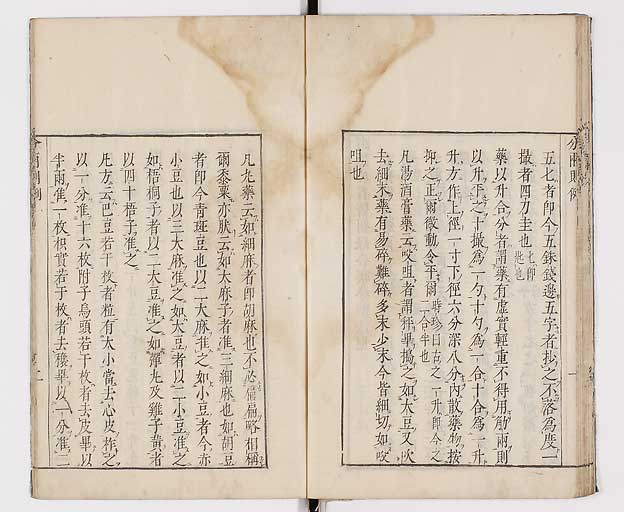 分兩則例
五匕者卽今五銖錢邊五字者抄之不落爲度一
撮者四刀圭也匕卽匙也
藥以升合分者謂藥有虛實輕重不得用觔兩則
以升平之十撮爲一勺十勺爲一合十合爲一升
升方作上徑一寸下徑六分深八分內散藥物按
抑之正爾微動令平爾時珍曰古之一升卽今之二合半也
凡湯酒膏藥云㕮咀者謂秤畢搗之如大豆又吹
去細末藥有易碎難碎多末少末今皆細切如㕮
咀也
凡丸藥云如細麻者卽胡麻也不必扁扁略相稱
爾黍粟亦然云如大麻子者準三細麻也如胡豆
者卽今靑斑豆也以二大麻準之如小豆者今赤
小豆也以三大麻準之如大豆者以二小豆準之
如梧桐子者以二大豆準之如彈丸及雞子黃者
以四十梧子準之
凡方云巴豆若干枚者粒有大小當去心皮秤之
以一分準十六枚附子烏頭若干枚者去皮畢以
半兩準一枚枳實若干枚者去穰畢以一分準二
分兩則例
二